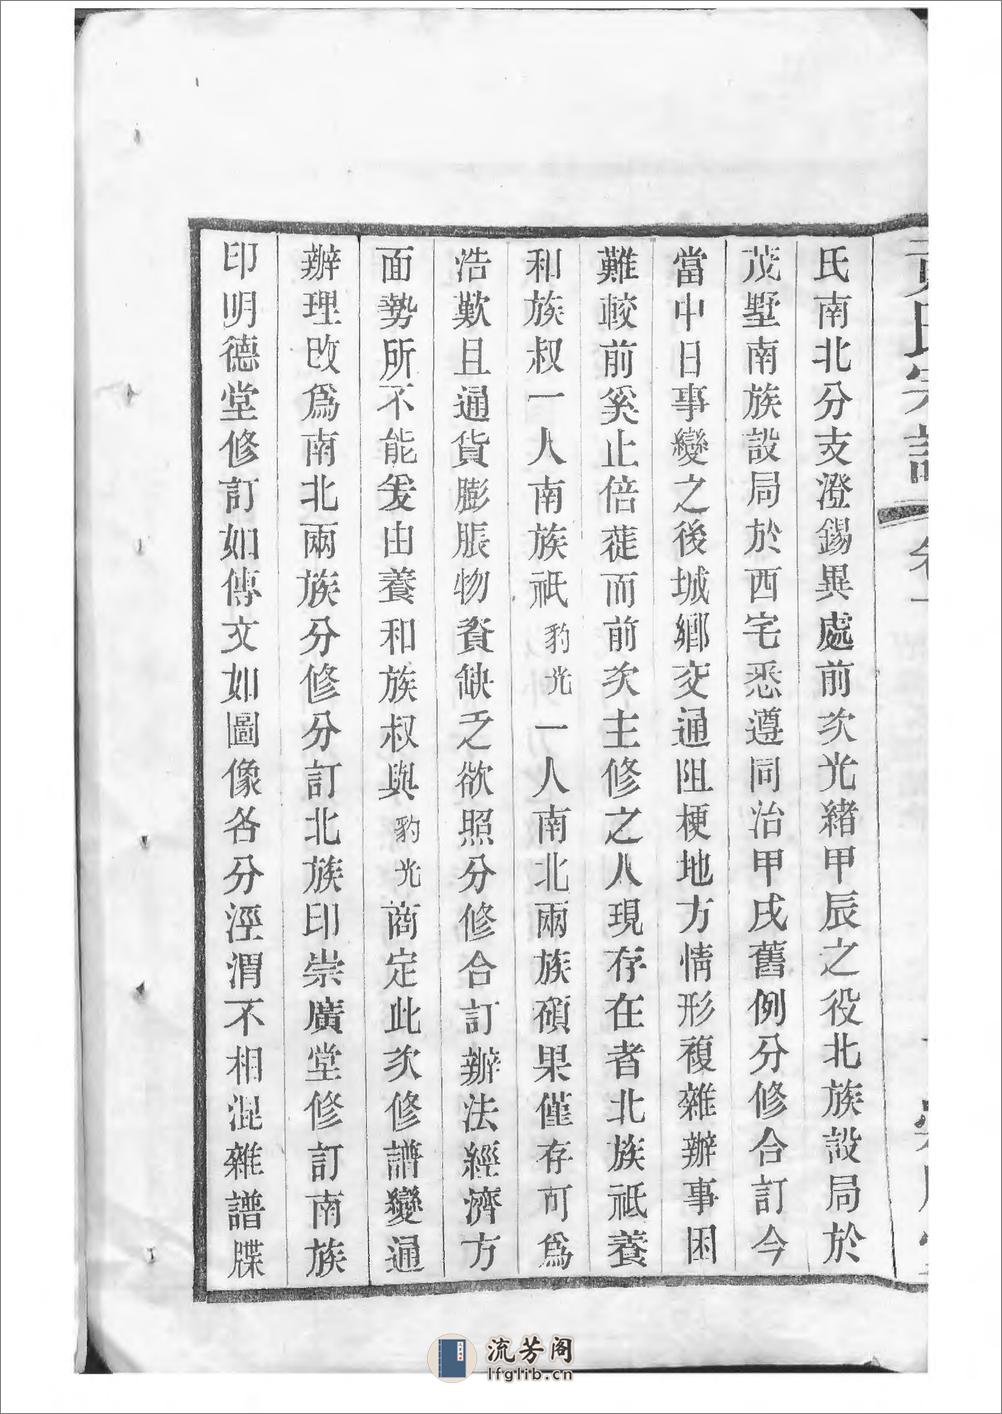 氏南北分支澄錫異處前次光緒甲辰之役北族設局於
茂墅南族設局於西宅悉遵同治甲戌舊例分修合訂今
當中日事變之後城鄉交通阻梗地方情形複雜辦事困
難較前奚止倍蓰而前次主修之人現存在者北族祇養
和族叔一人南族祇豹光一人南北兩族碩果僅存可為
浩歎且通貨膨脹物資缺乏欲照分修合訂辦法經濟方
面勢所不能爰由養和族叔與豹光商定此次修譜變通
辦理改為南北兩族分修分訂北族印崇廣堂修訂南族
印明德堂修訂如傳文如圖像各分涇渭不相混雜譜牒
流芳阁
lfglib.cn